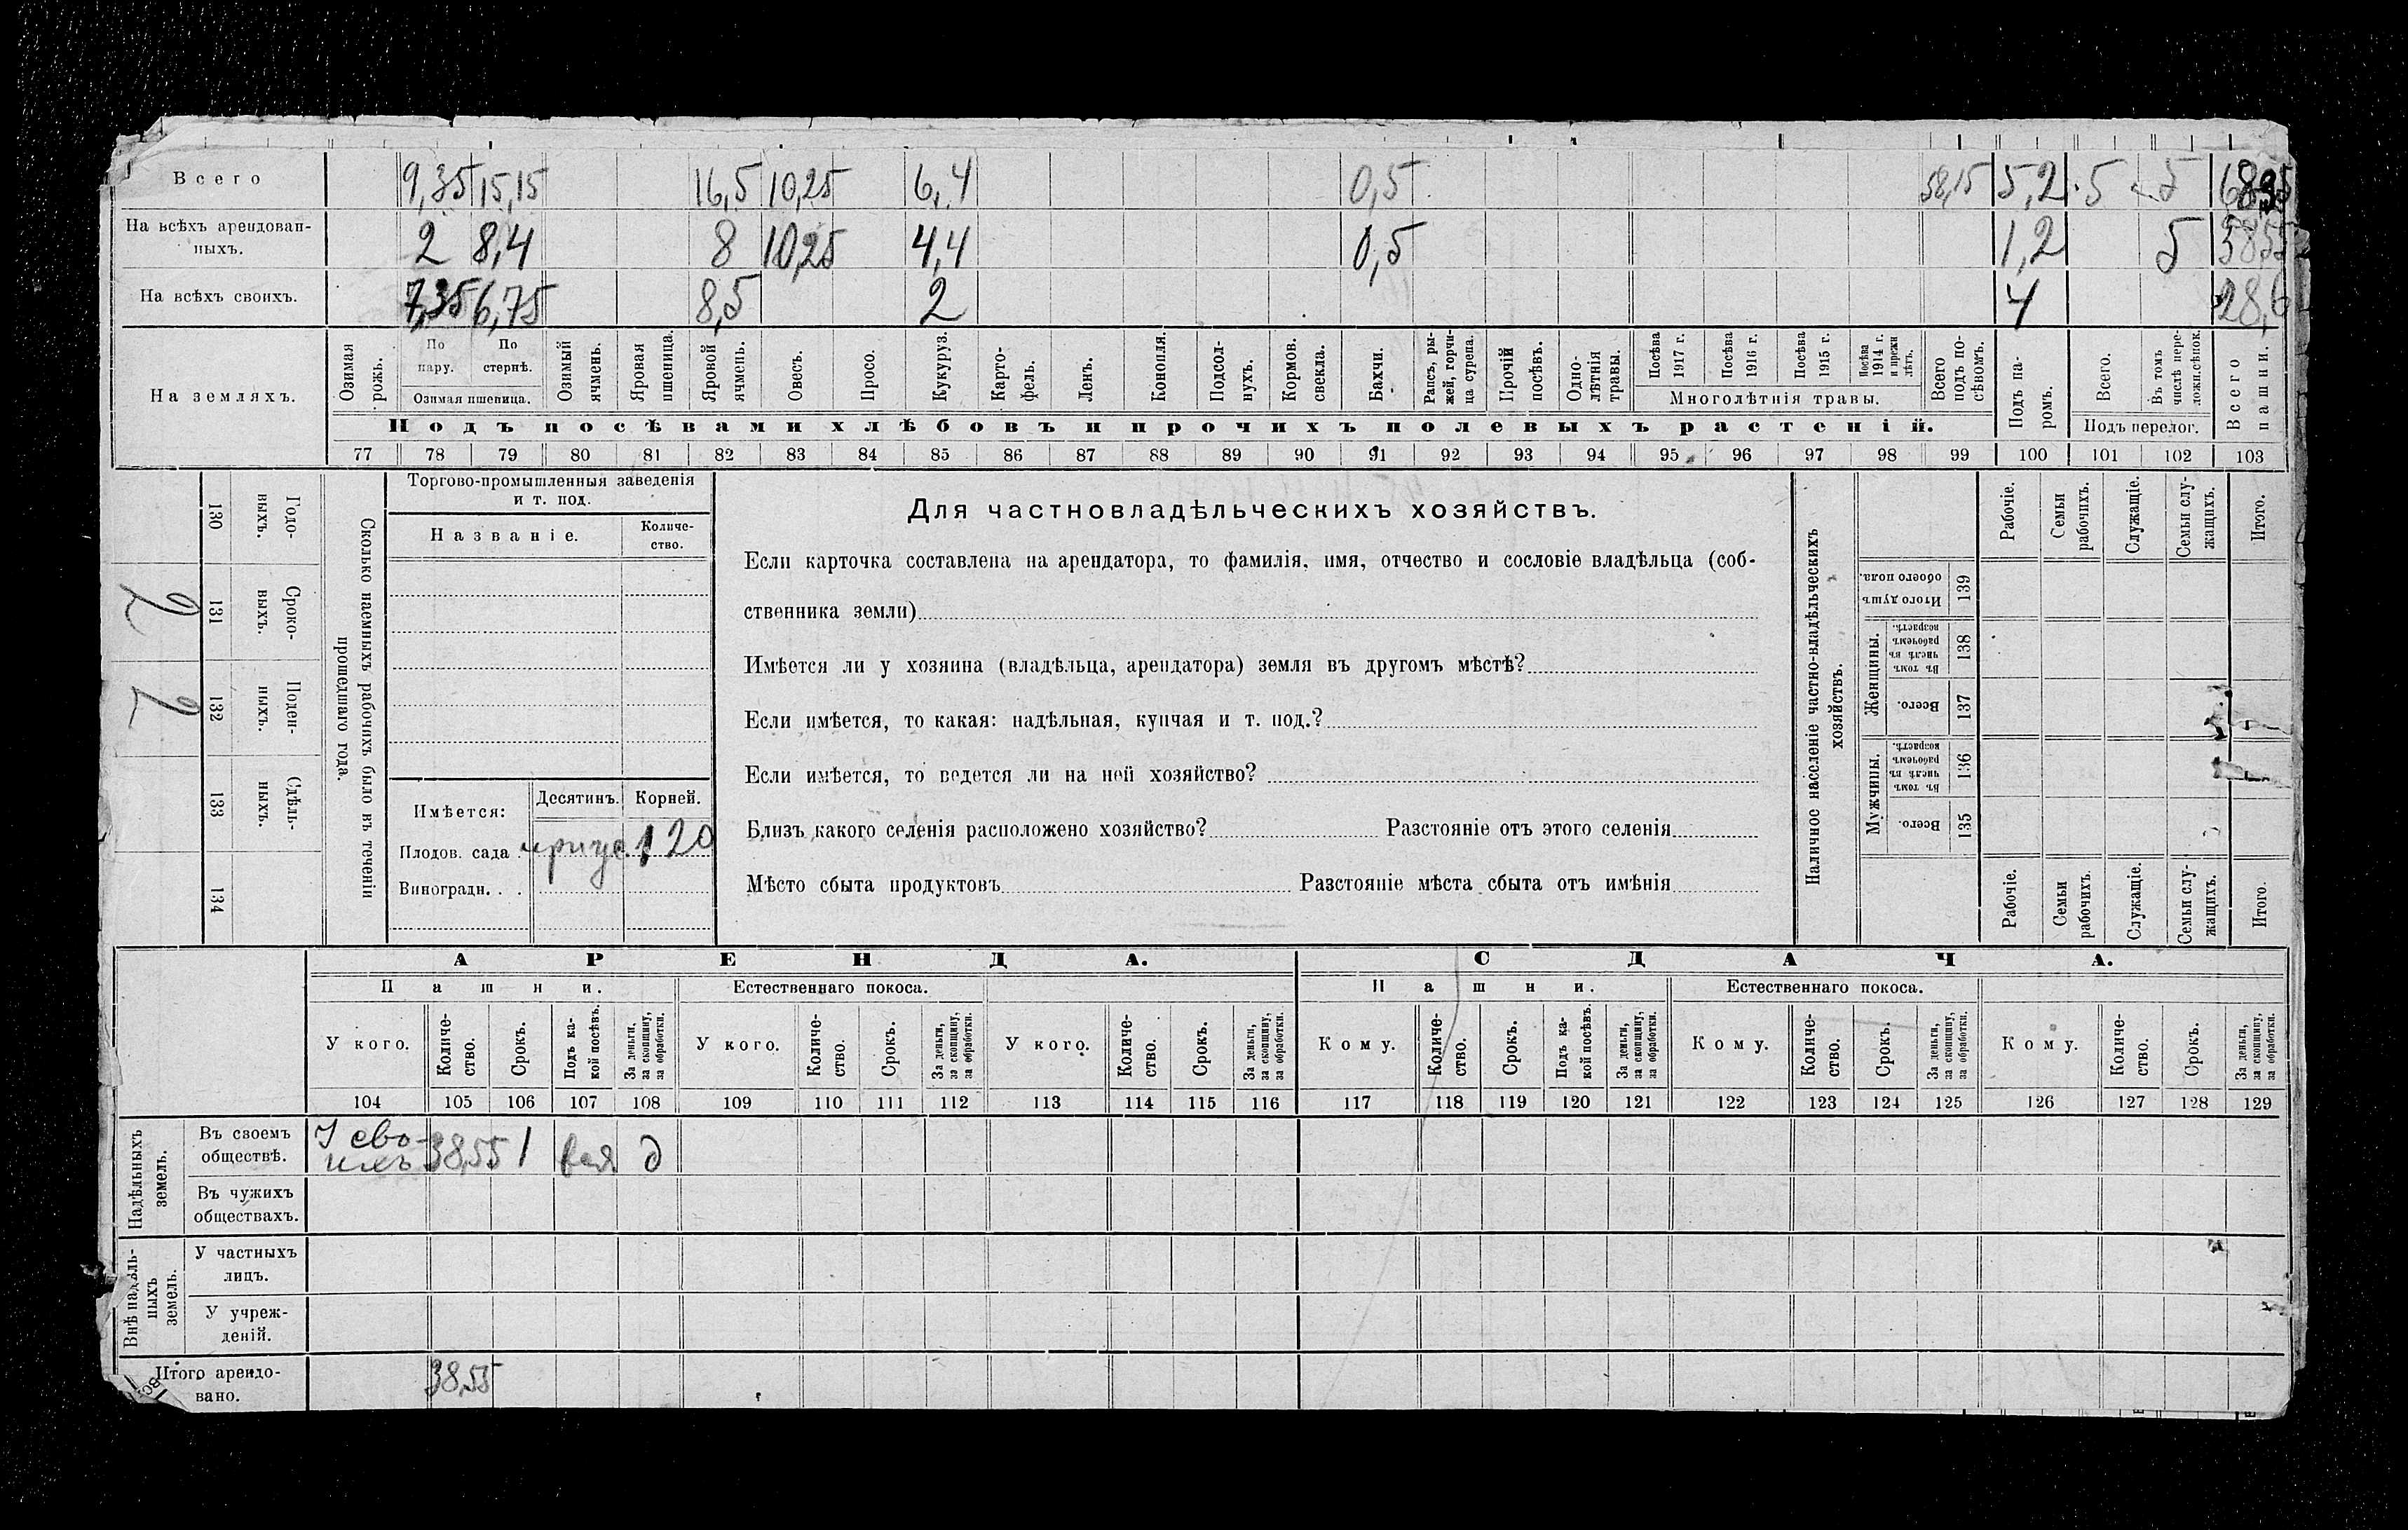 Всего 9,35 15,15 16,5 10,25 6,4 0,5 58,15 5,2 5 5 68,35
На всѣхъ арендован-
ныхъ. 2 8,4 8 10,25 4,4 0,5 1,2 5
На всѣхъ своихъ. 7,35 6,75 8,5 2 4 28,6
На земляхъ.
Озимая рожь.
По пару.
По стернѣ.
Озимая пшеница.
Озимый ячмень.
Яровая пшеница.
Яровой ячмень.
Овесъ.
Просо.
Кукуруз.
Карто-
фель.
Ленъ.
Конопля.
Подсол-
нухъ.
Кормов. свекла.
Бахчи.
Рапсъ, ры-
жей, горчи-
ца сурепа.
Прочій посѣвъ.
Одно-
лѣтнія травы.
Посѣва 1917 г.
Посѣва 1916 г.
Посѣва 1915 г.
Посѣва 1914 г. и прежн лѣтъ.
Многолѣтнія травы.
Всего подъ по-
сѣвомъ.
Подъ па-
ромъ.
Всего.
Въ томъ числѣ пере-
ложн.сѣнок.
Подъ перелог.
Всего пашни.
Подъ посѣвами хлѣбовъ и прочихъ полевыхъ растеній.
77 78 79 80 81 82 83 84 85 86 87 88 89 90 91 92 93 94 95 96 97 98 99 100 101 102 103
Сколько наемныхъ рабочихъ было въ теченіи
прошедшаго года.
Годо-
выхъ.
130
Сроко-
выхъ.
131
2
Поден-
ныхъ.
132
2
Сдѣль-
ныхъ.
133
134
Торгово-промышленныя заведенія
и т. под.
Названіе.
Количе-
ство.
Имѣется:
Десятинъ.
Корней.
Плодов. сада . 120
Виноградн. . .
Для частновладѣльческихъ хозяйствъ.
Если карточка составлена на арендатора, то фамилія, имя, отчество и сословіе владѣльца (соб-
ственника земли)
Имѣется ли у хозяина (владѣльца, арендатора) земля въ другомъ мѣстѣ?
Если имѣется, то какая: надѣльная, купчая и т. под.?
Если имѣется, то ведется ли на ней хозяйство?
Близъ какого селенія расположено хозяйство? Разстояніе отъ этого селенія
Мѣсто сбыта продуктовъ Разстояніе мѣста сбыта отъ имѣнія
Наличное населеніе частно-владѣльческихъ
хозяйствъ.
Рабочіе.
Семьи рабочихъ.
Служащіе.
Семьи слу-
жащихъ.
Итого.
Итого душъ обоего пола.
139
Женщины.
Въ томъ числѣ въ рабочемъ возрастѣ.
138
Всего.
137
Мужчины.
Въ томъ числѣ въ рабочемъ возрастѣ.
136
Всего.
135
Рабочіе.
Семьи рабочихъ.
Служащіе.
Семьи слу-
жащихъ.
Итого.
АРЕНДА.
СДАЧА.
Пашни.
Естественнаго покоса.
Пашни.
Естественнаго покоса.
У кого.
Количе-
ство.
Срокъ.
Подъ ка-
кой посѣвъ.
За деньги, за скопщину, за обработки.
У кого.
Количе-
ство.
Срокъ.
За деньги, за скопщину, за обработки.
У кого.
Количе-
ство.
Срокъ.
За деньги, за скопщину, за обработки.
Кому.
Количе-
ство.
Срокъ.
Подъ ка-
кой посѣвъ.
За деньги, за скопщину, за обработки.
Кому.
Количе-
ство.
Срокъ.
За деньги, за скопщину, за обработки.
Кому.
Количе-
ство.
Срокъ.
За деньги, за скопщину, за обработки.
104 105 106 107 108 109 110 111 112 113 114 115 116 117 118 119 120 121 122 123 124 125 126 127 128 129
Надѣльныхъ земель.
Въ своемъ
обществѣ. У сво-
ихъ 38,55 1 д
Въ чужихъ
обществахъ.
Внѣ надѣль-
ныхъ земель.
У частныхъ
лицъ.
У учреж-
деній.
Итого арендо-
вано. 38,55